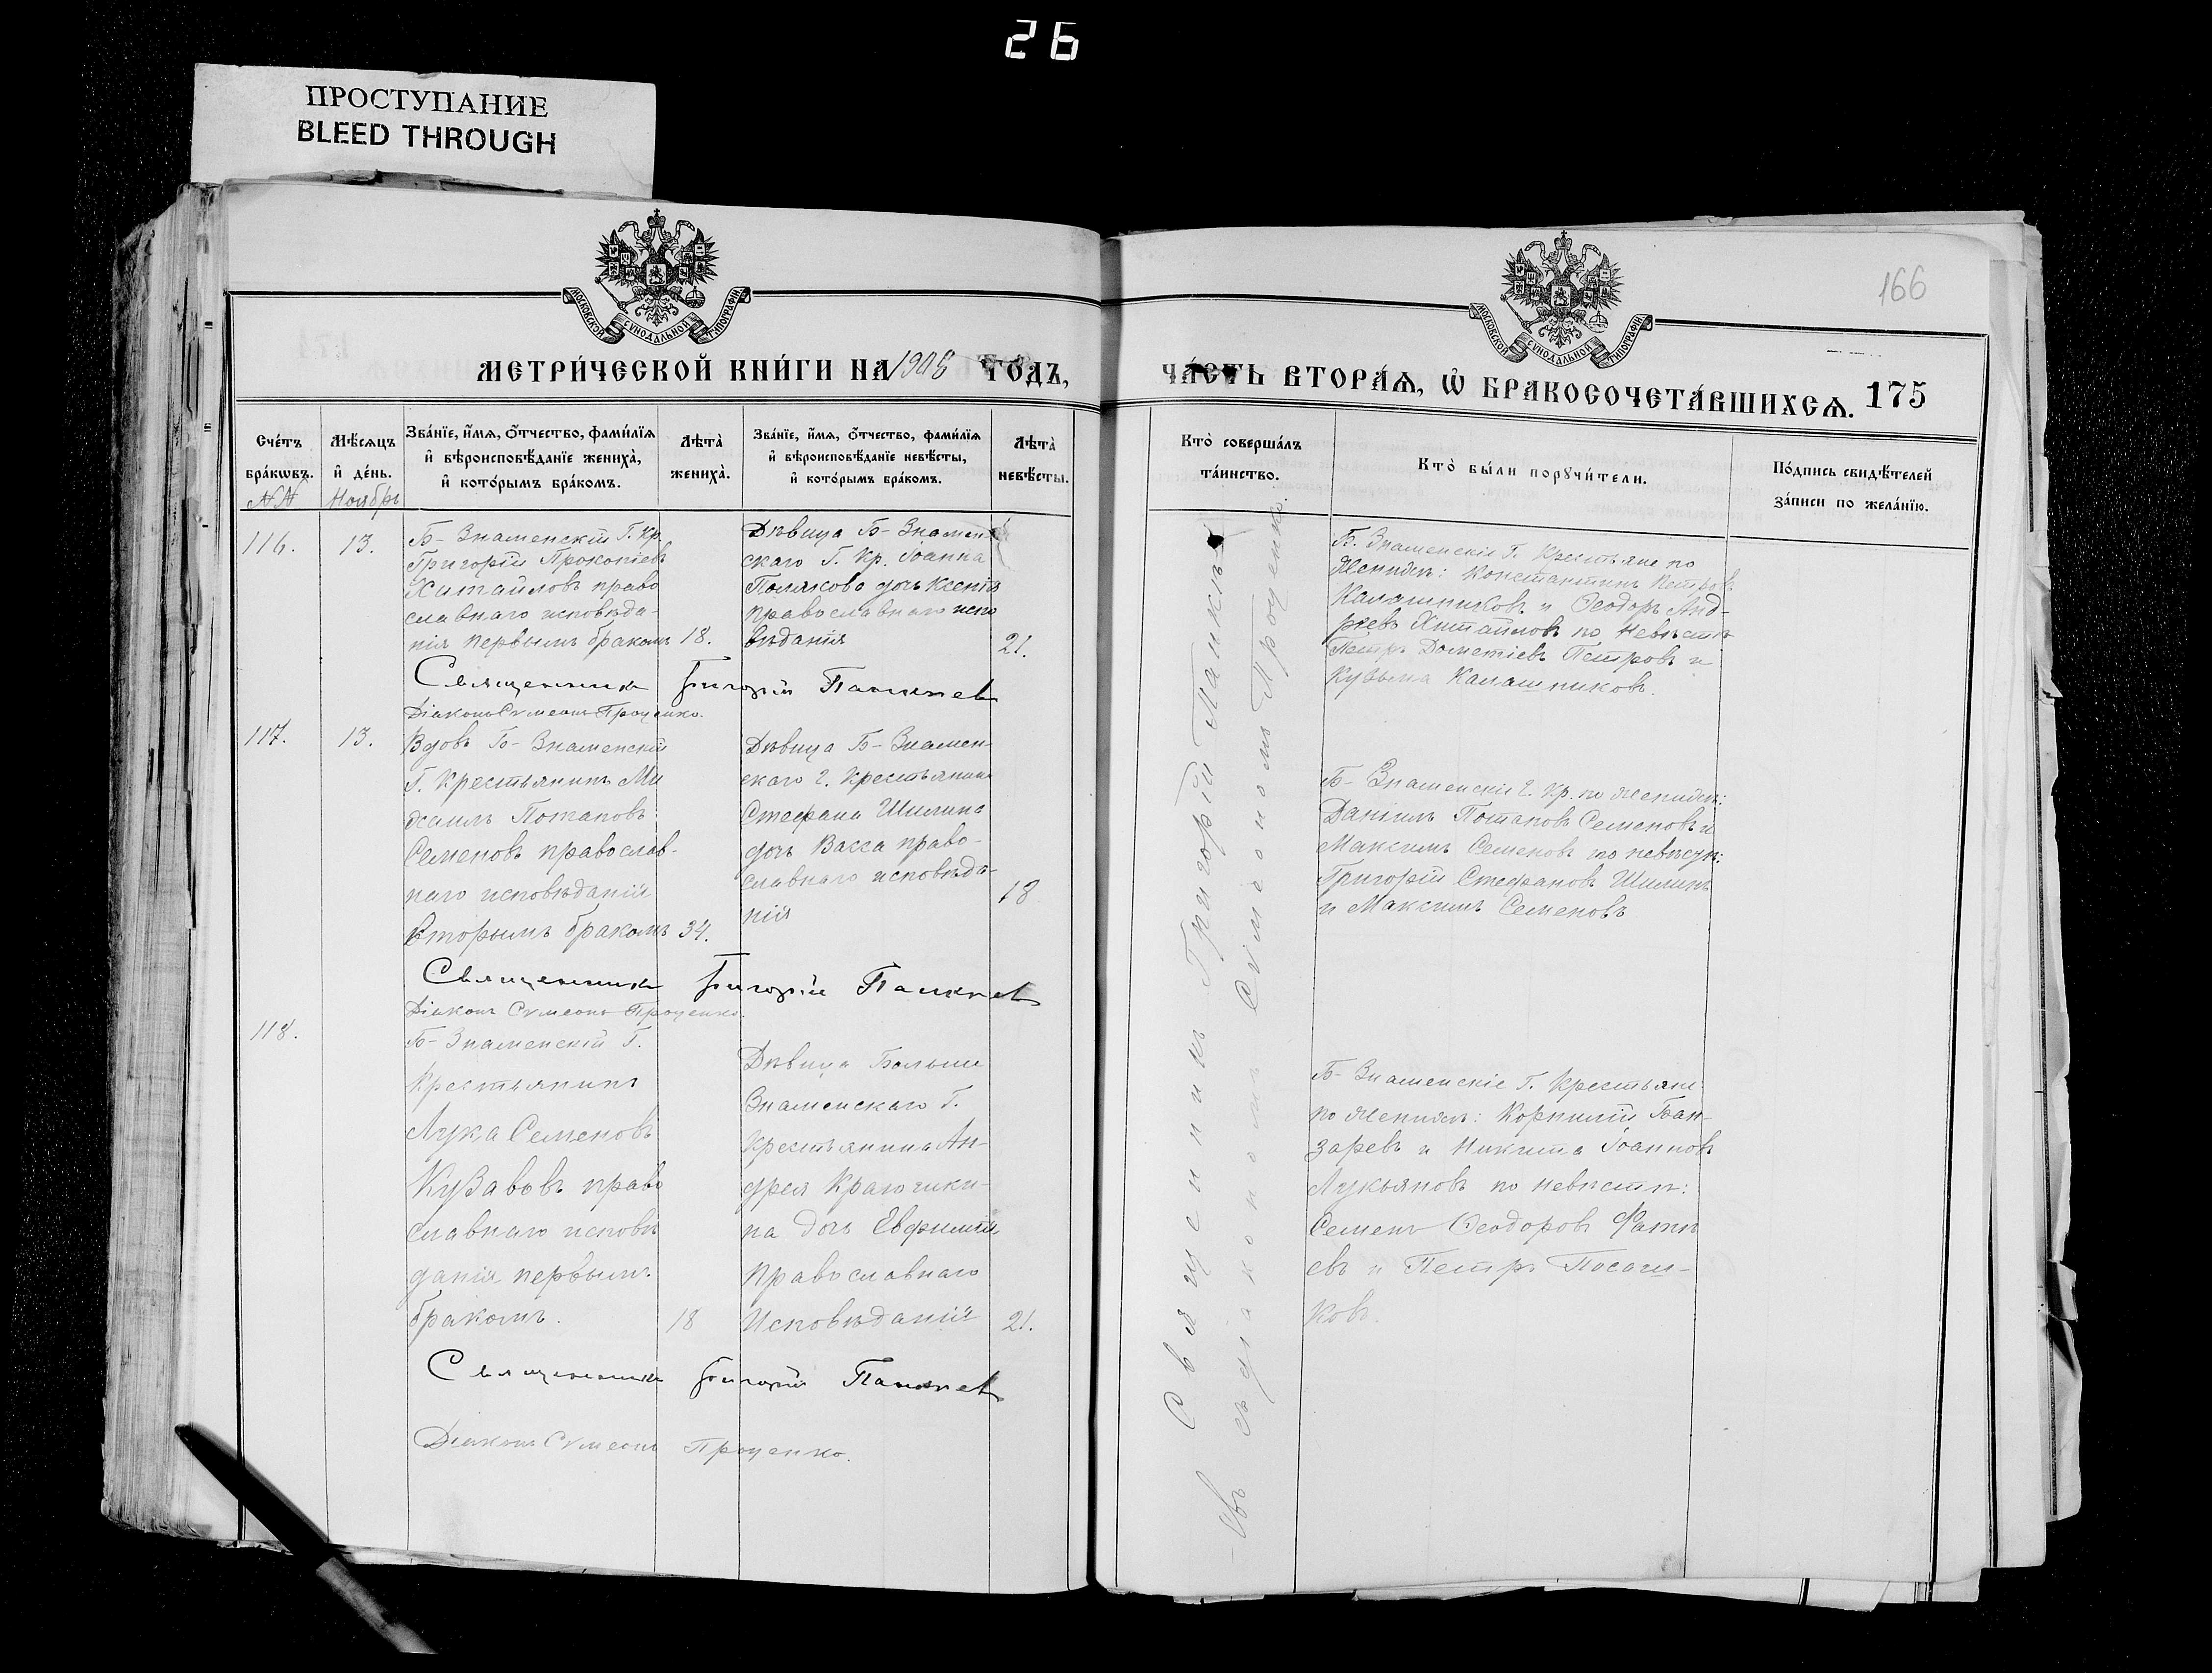 26
ПРОСТУПАНИЕ
BLEED THROUGH
МОСКОВСКОЙ СѴНОДАЛЬНОЙ ТИПОГРАФІИ
МЕТРИ́ЧЕСКОЙ КНИ́ГИ НА 1905 ГО́ДЪ,
Сче́тъ бра́кωвъ.
№№
Мѣ́сяцъ и҆ де́нь.
Ноябрь
Зва́нїе, и҆́мѧ, ѻ҆́тчество, фами́лїѧ
и҆ вѣроисповѣ́данїе жениха̀,
и҆ кото́рымъ бра́комъ.
Лѣта̀
жениха̀.
Зва́нїе, и҆́мѧ, ѻ҆́тчество, фами́лїѧ
и҆ вѣроисповѣ́данїе невѣ́сты,
и҆ кото́рымъ бра́комъ.
Лѣта̀
невѣ́сты.
116.
13.
Б-Знаменскій Г. Кр.
Григорій Прокопіевъ
Хитайловъ право
славнаго исповѣда-
нія первымъ бракомъ
18.
Дѣвица Б-Знамен
скаго Г. Кр. Іоанна
Полякова дочь Ксенія
православнаго испо
вѣданія
21.
Священникъ Григорій Пашкнев
Діаконъ Сѵмеонъ Проценко.
117.
13.
Вдовъ Б-Знаменскій
Г. Крестьянинъ Ми
хаилъ Потаповъ
Семеновъ православ-
наго исповѣданія
вторымъ бракомъ
34.
Дѣвица Б-Знамен-
скаго Г. Крестьянина
Стефана Шилина
дочь Васса право-
славнаго исповѣда-
нія
18
Священникъ Григорій
Діаконъ Сѵмеонъ Проценко.
118.
Б-Знаменскій Г.
Крестьянинъ
Лука Семеновъ
право
славнаго исповѣ
данія первымъ
бракомъ.
18
Дѣвица Больше
Знаменскаго Г.
Крестьянина Ан-
дрея
на дочь Евфимія
Православнаго
Исповѣданія
21.
Священникъ Григорій
Діаконъ Сѵмеонъ Проценко.
166
МОСКОВСКОЙ СѴНОДАЛЬНОЙ ТИПОГРАФІИ
ЧА́СТЬ ВТОРА́Ѧ, Ѡ҆ БРАКОСОЧЕТА́ВШИХСѦ. 175
Кто̀ соверша́лъ
та́инство.
Кто̀ бы́ли порꙋчи́тели.
По́дпись свидѣ́телей
за́писи по жела́нїю.
Священникъ Григорій
съ діакономъ Сѵмеономъ Проценко.
Б. Знаменскіе Г. Крестьяне по
Женихѣ: Константинъ Петровъ
Калашниковъ и Ѳеодоръ Анд-
реевъ Хитайловъ по Невѣстѣ
Петръ Дометіевъ Петровъ и
Кузьма Калашниковъ.
Б-Знаменскіе Г. Кр. по Женихѣ:
Даніилъ Потаповъ Семеновъ и
Максимъ Семеновъ по невѣстѣ:
Григорій Стефановъ Шилинъ
и Максимъ Семеновъ
Б-Знаменскіе Г. Крестьяне
по Женихѣ: Корнилій Бон-
заревъ и Никита Іоанновъ
Лукьяновъ по невѣстѣ:
Семенъ Ѳеодоровъ Фатѣ
евъ и Петръ Посаш-
ковъ.